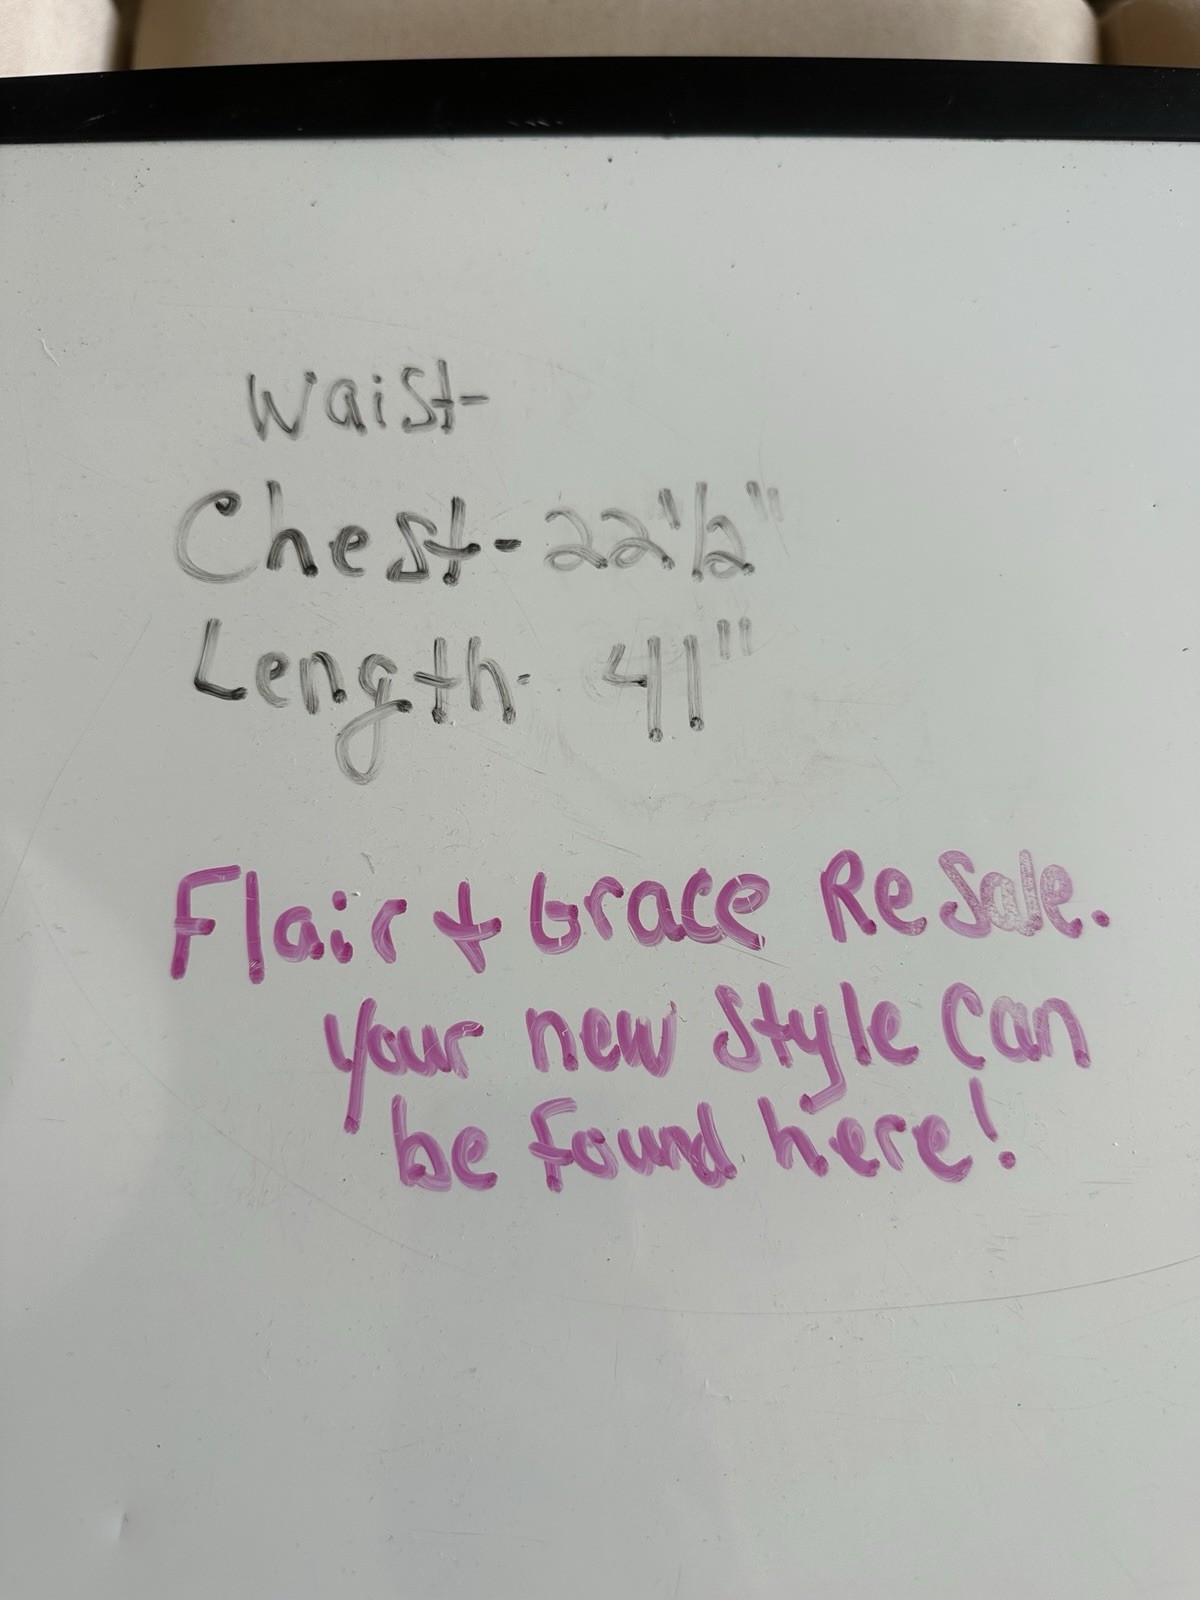 Waist-
Chest- 22 1/2"
Length- 41"
Flair & Grace ReSale.
Your new Style Can
be found here!